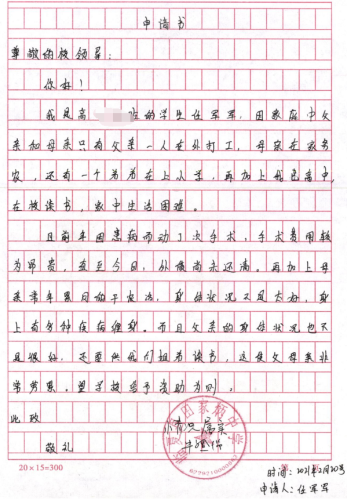 申请书
尊敬的校领导:
你好!
我是高 班的学生任军军,因家庭中父
亲和母亲只有父亲一人在外打工,母亲在家务
农,还有一个弟弟在上小学,再加上我是高中,
在校读书,家中生活困难。
且前年因患病而动了次手术,手术费用较
为昂贵,直至今日,外债尚未还清。再加上母
亲常年累月的干农活,身体状况又是不好,身
上有多种疾病缠身。而且父亲的身体状况也不
是很好,还要供我们姐弟读书,这使父母亲非
常劳累。望学校给予资助为盼。
此致
敬礼
情况属实
时间:2021年2月20号
申请人:任军军
20×15=300